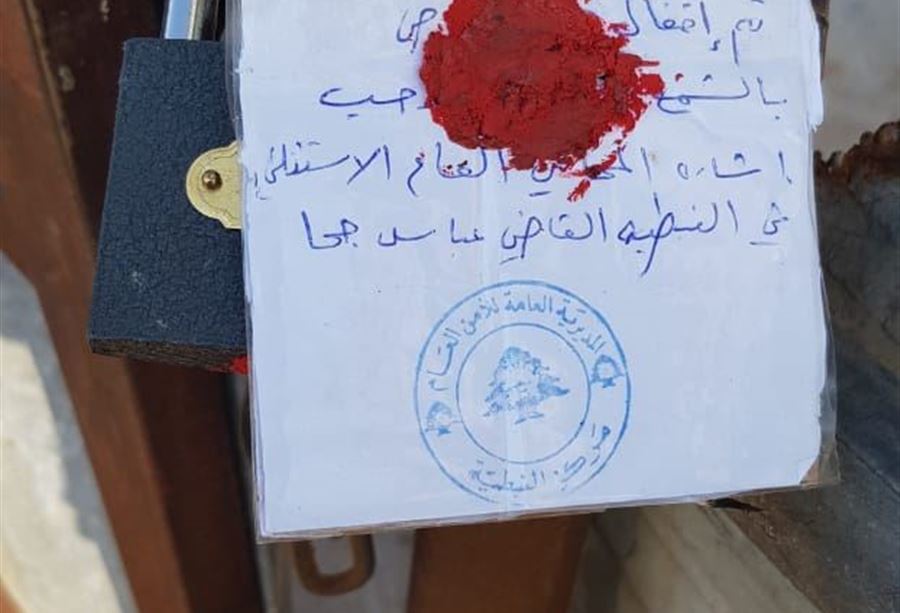 تم إقفال
بالشمع
بإشارة المحامي العام الاستئنافي
في النبطية القاضي عباس جحا
المديرية العامة للأمن العام
مركز النبطية